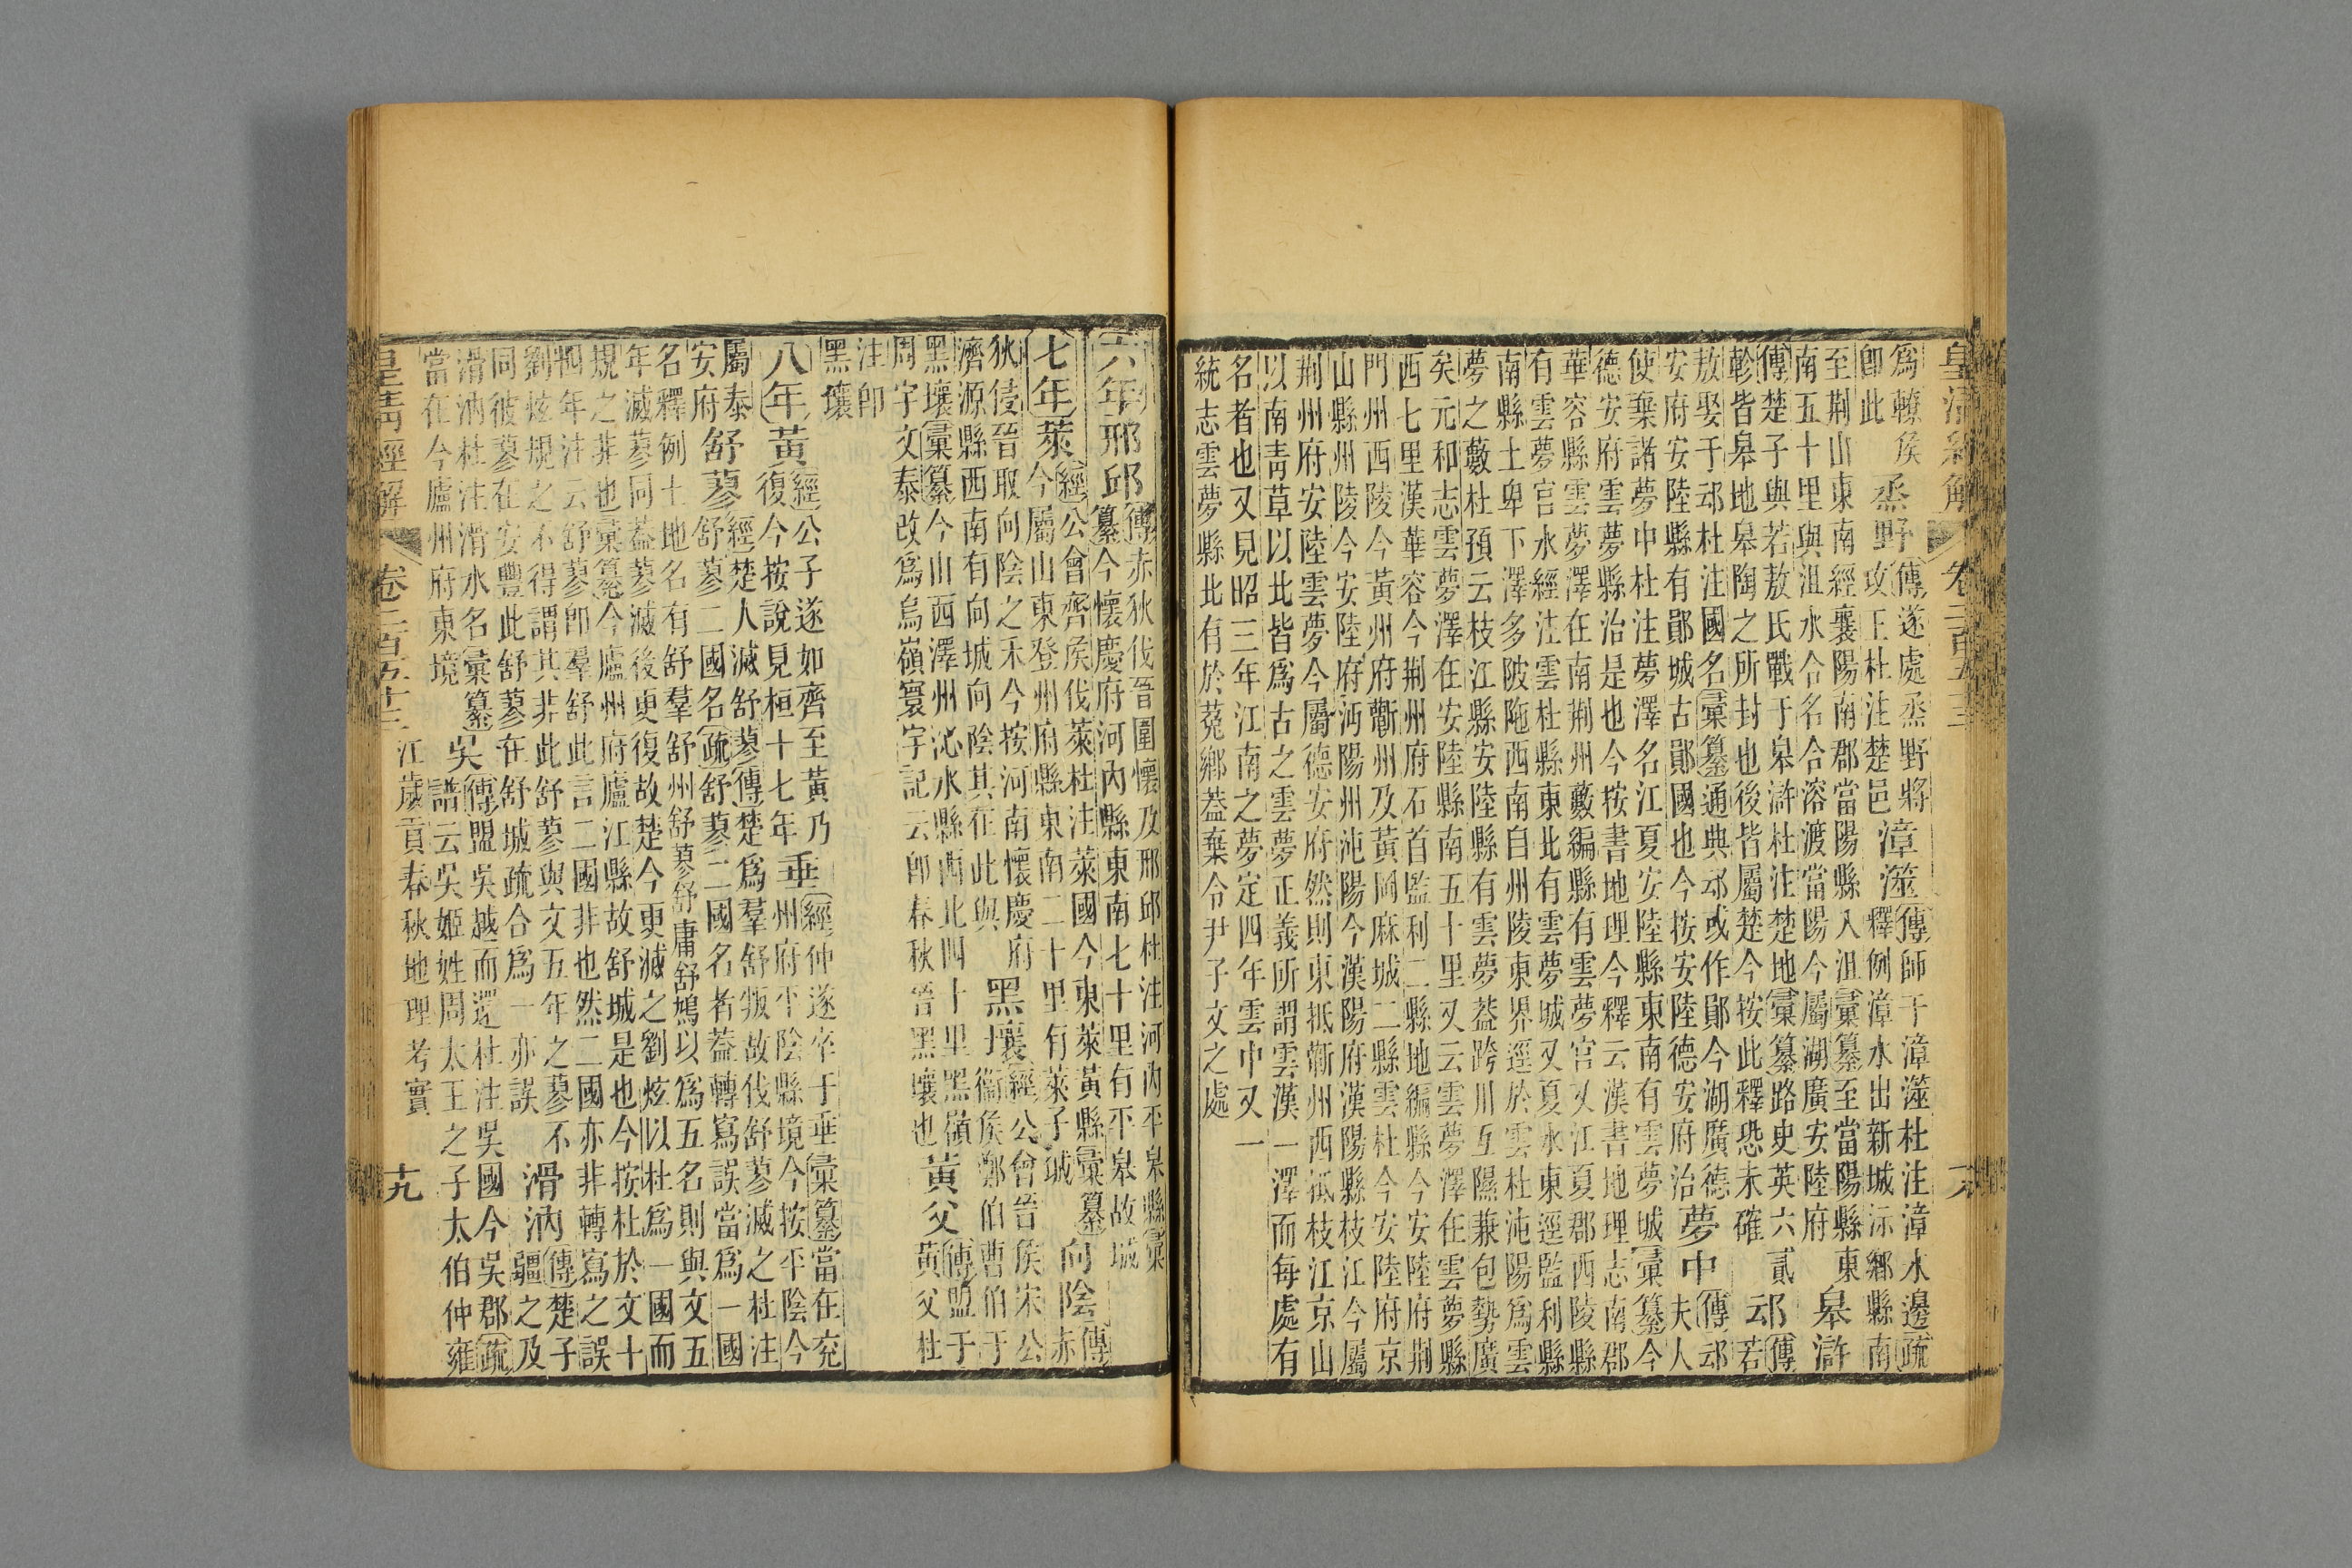 皇清經解 卷二百五十三 十八
爲轑矦
卽此
烝野
傳遂處烝野將
攻王杜注楚邑
漳澨
傳師于漳澨杜注漳水邊疏
釋例漳水出新城沶鄉縣南
至荆山東南經襄陽南郡當陽縣入沮彙纂至當陽縣東
南五十里與沮水合名合溶渡當陽今屬湖廣安陸府
臯滸
傳楚子與若敖氏戰于臯滸杜注楚地彙纂路史英六貳
軫皆臯地臯陶之所封也後皆屬楚今按此釋恐未確
邧
傳若
敖娶于邧杜注國名彙纂通典邧或作鄖今湖廣德
安府安陸縣有鄖城古鄖國也今按安陸德安府治
夢中
傳邧
夫人
使棄諸夢中杜注夢澤名江夏安陸縣東南有雲夢城彙纂今
德安府雲夢縣治是也今按書地理今釋云漢書地理志南郡
華容縣雲夢澤在南荆州藪編縣有雲夢官又江夏郡西陵縣
有雲夢官水經注雲杜縣東北有雲夢城又夏水東逕監利縣
南縣土卑下澤多陂陁西南自州陵東界逕於雲杜沌陽爲雲
夢之藪杜預云枝江縣安陸縣有雲夢蓋跨川亙隰兼包勢廣
矣元和志雲夢澤在安陸縣南五十里又云雲夢澤在雲夢縣
西七里漢華容今荆州府石首監利二縣地編縣今安陸府荆
門州西陵今黃州府蘄州及黃岡麻城二縣雲杜今安陸府京
山縣州陵今安陸府沔陽州沌陽今漢陽府漢陽縣枝江今屬
荆州府安陸雲夢今屬德安府然則東抵蘄州西抵枝江京山
以南青草以北皆爲古之雲夢正義所謂雲漢一澤而每處有
名者也又見昭三年江南之夢定四年雲中又一
統志雲夢縣北有於菟鄉蓋棄令尹子文之處
六年邢邱
傳赤狄伐晉圍懷及邢邱杜注河內平臯縣彙
纂今懷慶府河內縣東南七十里有平臯故城
七年萊
經公會齊矦伐萊杜注萊國今東萊黃縣彙纂
今屬山東登州府縣東南二十里有萊子城
向陰
傳
赤
狄侵晉取向陰之禾今按河南懷慶府
濟源縣西南有向城向陰其在此與
黑壤
經公會晉矦宋公
衞矦鄭伯曹伯于
黑壤彙纂今山西澤州沁水縣西北四十里黑嶺
周宇文泰改爲烏嶺寰宇記云卽春秋晉黑壤也
黃父
傳盟于
黃父杜
注卽
黑壤
八年黃
經公子遂如齊至黃乃
復今按說見桓十七年
垂
經仲遂卒于垂彙纂當在兗
州府平陰縣境今按平陰今
屬泰
安府
舒蓼
經楚人滅舒蓼傳楚爲羣舒叛故伐舒蓼滅之杜注
舒蓼二國名疏舒蓼二國名者蓋轉寫誤當爲一國
名釋例土地名有舒羣舒州舒蓼舒庸舒鳩以爲五名則與文五
年滅蓼同蓋蓼滅後更復故楚今更滅之劉炫以杜爲一國而
規之非也彙纂今廬州府廬江縣故舒城是也今按杜於文十
四年注云舒蓼卽羣舒此言二國非也然二國亦非轉寫之誤
劉炫規之不得謂其非此舒蓼與文五年之蓼不
同彼蓼在安豐此舒蓼在舒城疏合爲一亦誤
滑汭
傳楚子
疆之及
滑汭杜注滑水名彙纂
當在今廬州府東境
吳
傳盟吳越而還杜注吳國今吳郡疏
譜云吳姬姓周太王之子太伯仲雍
皇清經解 卷二百五十三 江歲貢春秋地理考實 十九